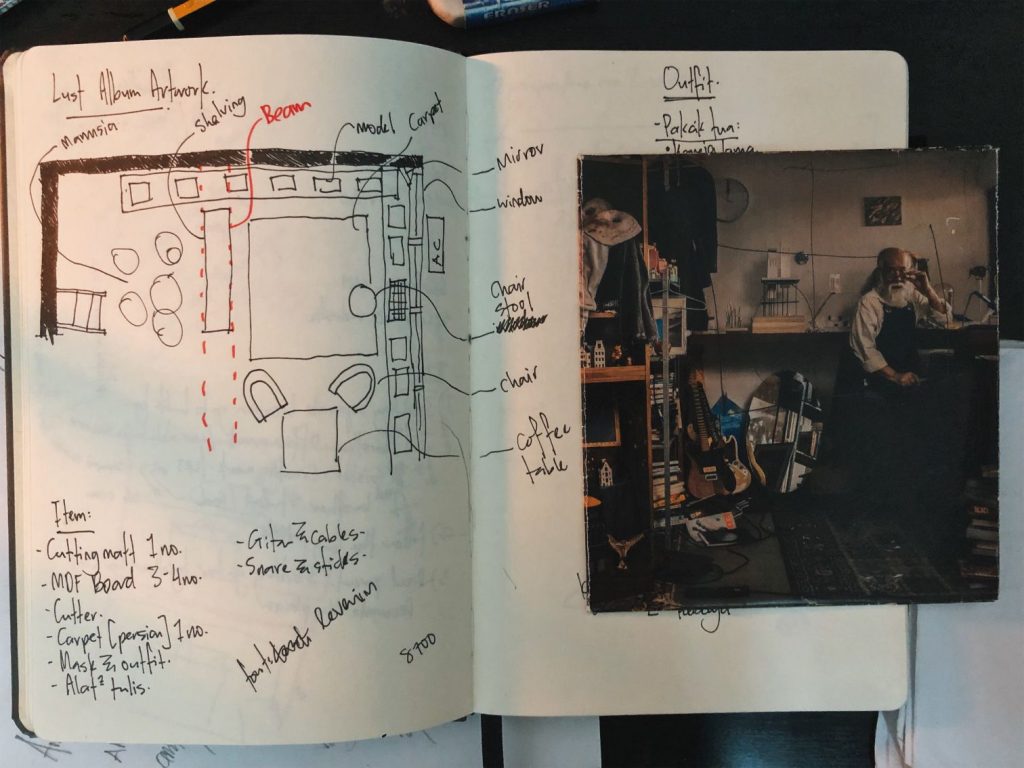 ERASER
Lust Album Artwork.
manusia
Shelving
Beam
model
Carpet
Mirror
window
A.C
Chair
Stool
chair
coffee
table
Item:
- Cutting matt 1 no.
- MDF Board 3-4 no.
- Cutter.
- Carpet [persian] 1 no.
- Mask & outfit.
- Alat² tulis.
- Gitar & cables -
- Snare & sticks -
8700
Outfit.
- Pakcik tua: